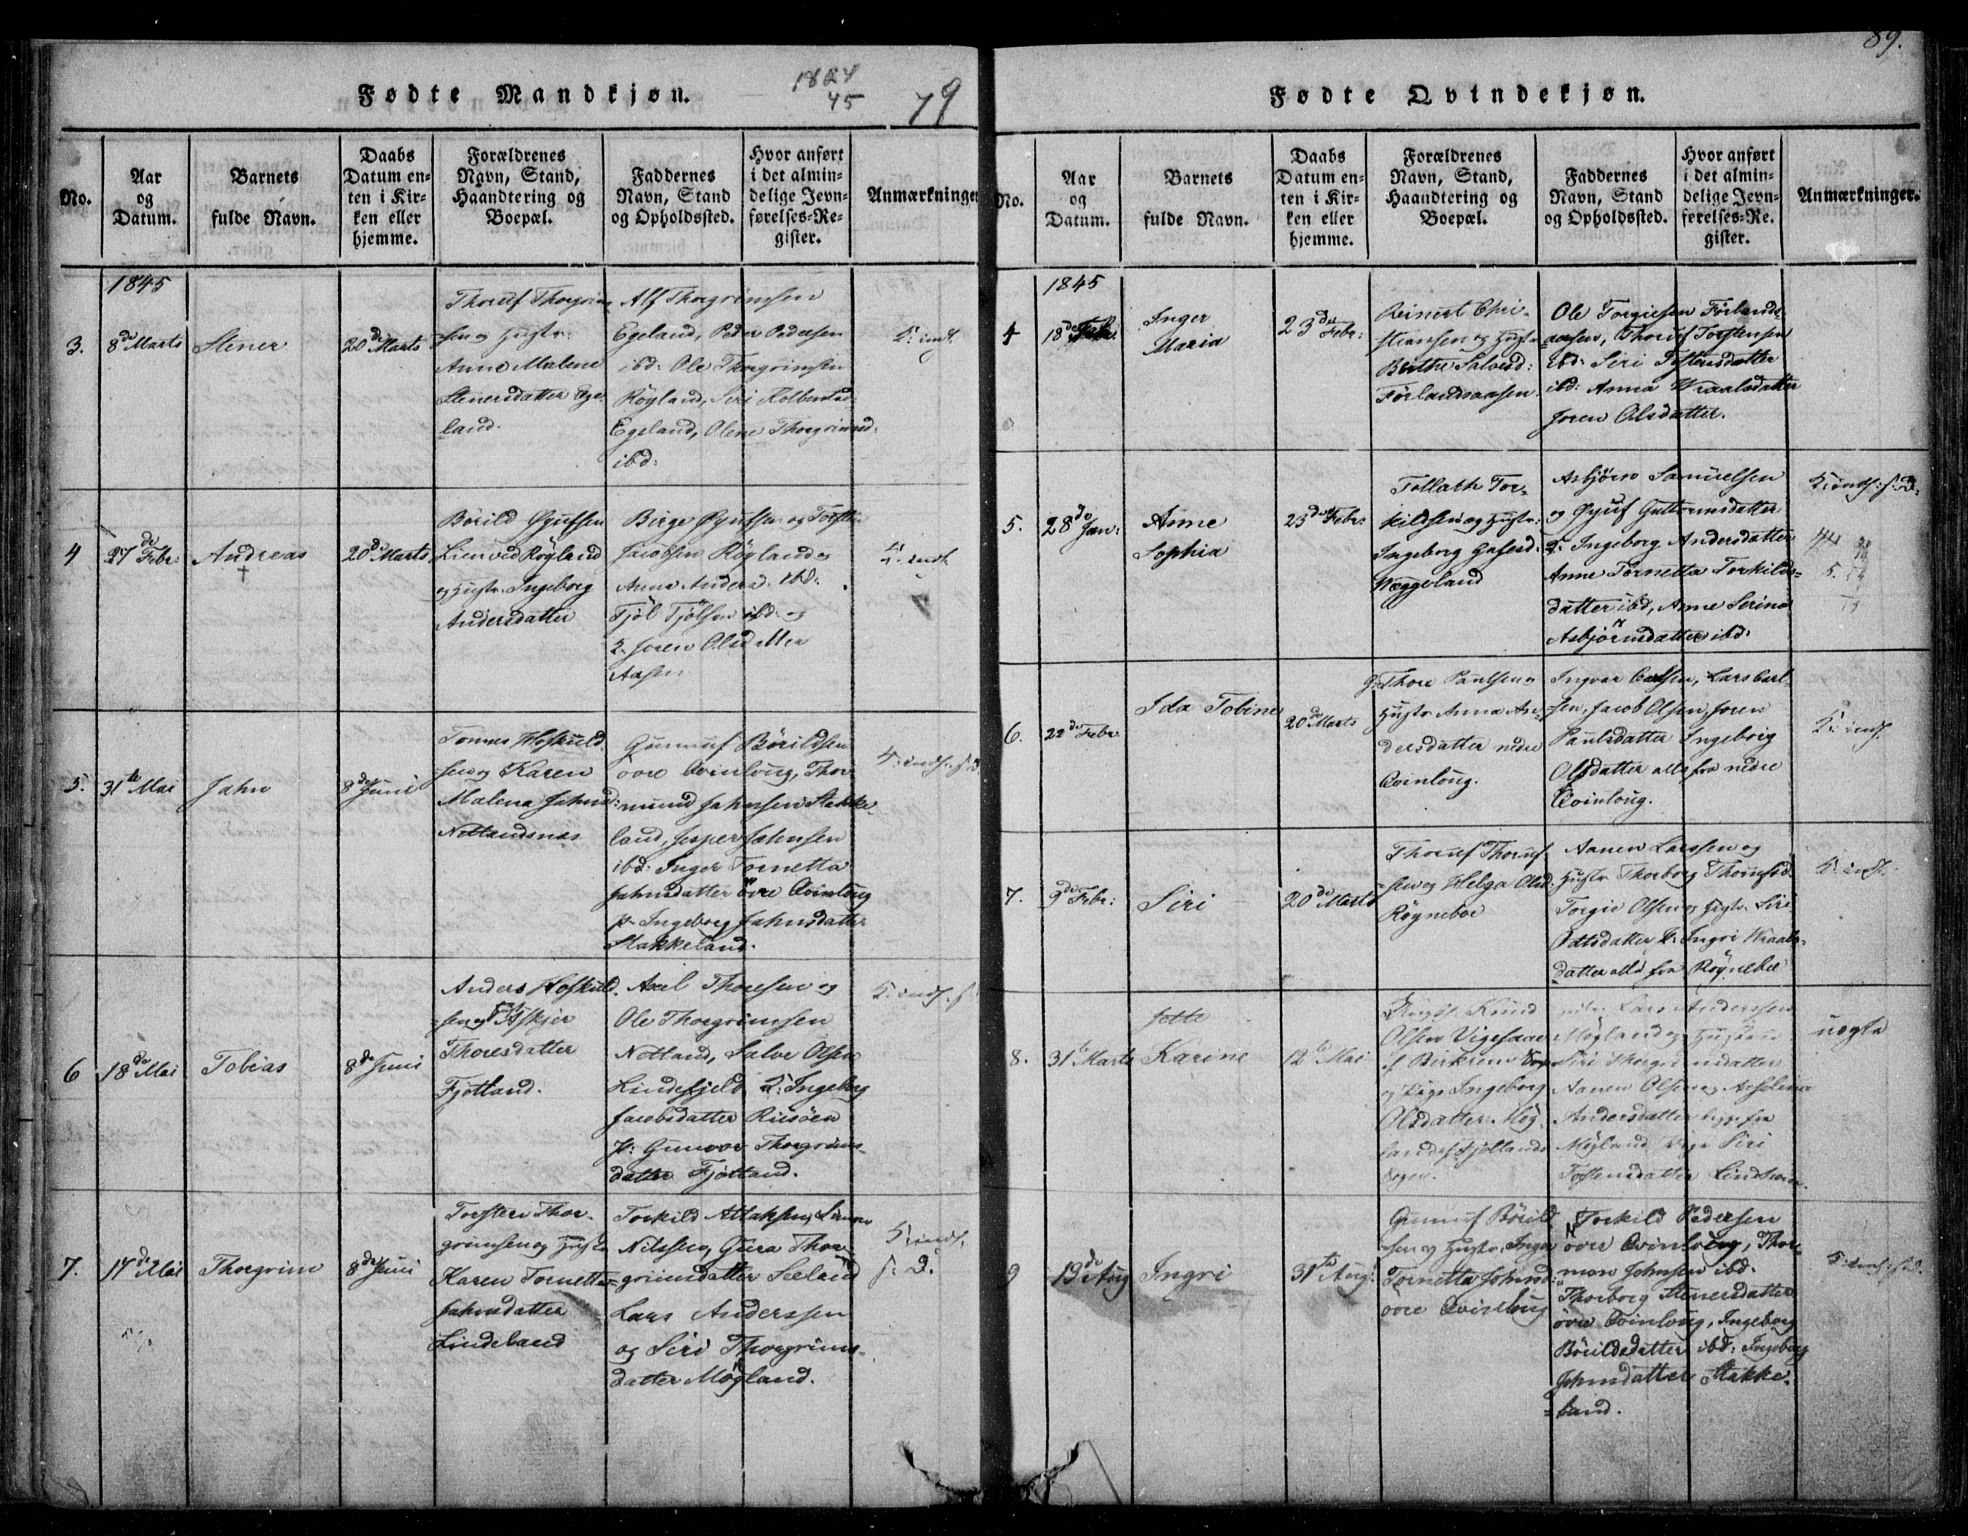 89.
Fødte Mandkjøn.
1824
45
79
No.
Aar og Datum.
Barnets fulde Navn.
Daabs Datum enten i Kirken eller hjemme.
Forældrenes Navn, Stand, Haandtering og Boepæl.
Faddernes Navn, Stand og Opholdssted.
Hvor anført i det almindelige Jevnførelses-Register.
Anmærkninger
1845
3.
8de Marts
Stener
20de Marts
Thoruf Thorgrim
sen og Hustr:
Anne Malene
Stenersdatter Ege
land.
Alf Thorgrimsen
Egeland, Peder Pedersen
ibd: Ole Thorgrimsen
Røgland, Siri
Egeland, Olene Thorgrimsd.
ibd:
4
27de Febr:
Andreas
†
20de Marts
Børild Gyufsen
Lienved Røgland
og Hustr. Ingeborg
Andersdatter
Birge Gyufsen og Torsten
Jacobsen Røgland og
Anna Andersd. ibd:
Tjøl Tjølsen ibd: og
2. Joren Olsdatter
Aasen
5.
31te Mai
Jahn
8de Juni
Tomas Hoskuld
sen og Karen
Malena Jahnsd:
Netlandsnes
Gunnuf Børildsen
øvre Qvinloug, Thor
mund Jahnsen Stakke
land, Jesper Jahnsen
ibd: Inger Tornetta
Jahnsdatter øvre Qvinloug
p. Ingeborg Jahnsdatter
Stakkeland.
6
18de Mai
Tobias
8de Juni
Anders Hoskuld
sen og Askjer
Thoresdatter
Fjotland.
Axel Thoresen og
Ole Thorgrimsen
Netland, Salve Olsen
Lindefjeld 2: Ingeborg
Jacobsdatter Risøen
p: Gunvor Thorgrims-
datter Fjotland.
7.
17de Mai
Thorgrim
8de Juni
Torsten Thor-
grimsen og Hustr
Karen Tornetta
Jahnsdatter
Lindeland
Torkild Attaksen, Simon
Nilssen, Gura Thor
grimdatter Seeland
Lars Anderssen
og Siri Thorgrims-
datter Møgland.
Fødte Qvindekjøn.
No.
Aar og Datum.
Barnets fulde Navn.
Daabs Datum enten i Kirken eller hjemme.
Forældrenes Navn, Stand, Haandtering og Boepæl.
Faddernes Navn, Stand og Opholdssted.
Hvor anført i det almindelige Jevnførelses-Re. gister.
Anmærkninger.
1845
4
18de Febr.
Inger
Maria
23de Febr:
Reinert Chri
stiansen og Hustr
Birthe Salvesd:
Førlandsaasen.
Ole Torgiesen Førlands
aasen, Thoruf Torstensen
ibd: Siri Tostensdatter
ibd: Anna Wraalsdatter
Joren Olsdatter.
5.
28de Jan:
Anne
Sophia
23de Febr
Tollak Tor-
kildsen og Hustr:
Ingeborg
Næggeland
Asbjørn Samuelsen
og Gyuf Guttormsdatter
2. Ingeborg Andersdatter
Anne Tornetta Torkilds=
datter ibd, Anne Serina
Asbjørnsdatter ibd:
6.
22de Febr
Ida Tobine
20de Marts
Thore Paulsen og
Hustr Anna An-
dersdatter nedre
Qvinloug.
Ingvar Carlsen, Lars Carl-
sen, Jacob Olsen, Joren
Paulsdatter Ingeborg
Olsdatter alle fra nedre
Qvinloug.
7.
9de Febr:
Siri
20de Marts
Thoruf Thoruf
sen og Helga Olsd:
Røyneboe
Aanen Larssen og
Hustr Thorborg Thorufsd.
Torgie Olsen og Hustr. Siri
Odtsdatter p: Ingri Wraals-
datter alle fra Røyneboe
8.
31te Marts
Jette
Karine
12te Mai
Knud
Olsen Vigesaae
Pige Ingeborg
Olsdatter Møg
land Fjotlands
Sogn.
Lars Anderssen
Møgland og Hustruen
Siri Thorgrimsdatter
Aanen Olsen og Asseline
Andersdatter begge fra
Møgland Pige Siri
Tostensdatter
uægta
9
19de Aug
Ingri
31te Aug:
Gunnuf Børild
sen og Hustr. Inger
Tornetta Johnsd:
øvre Qvinloug
Torkild Pedersen
øvre Qvinloug, Thor-
mon Johnsen ibd.
Thorborg Stenersdatter
øvre Qvinloug, Ingeborg
Børildsdatter ibd: Ingeborg
Johnsdatter Stakke
land.